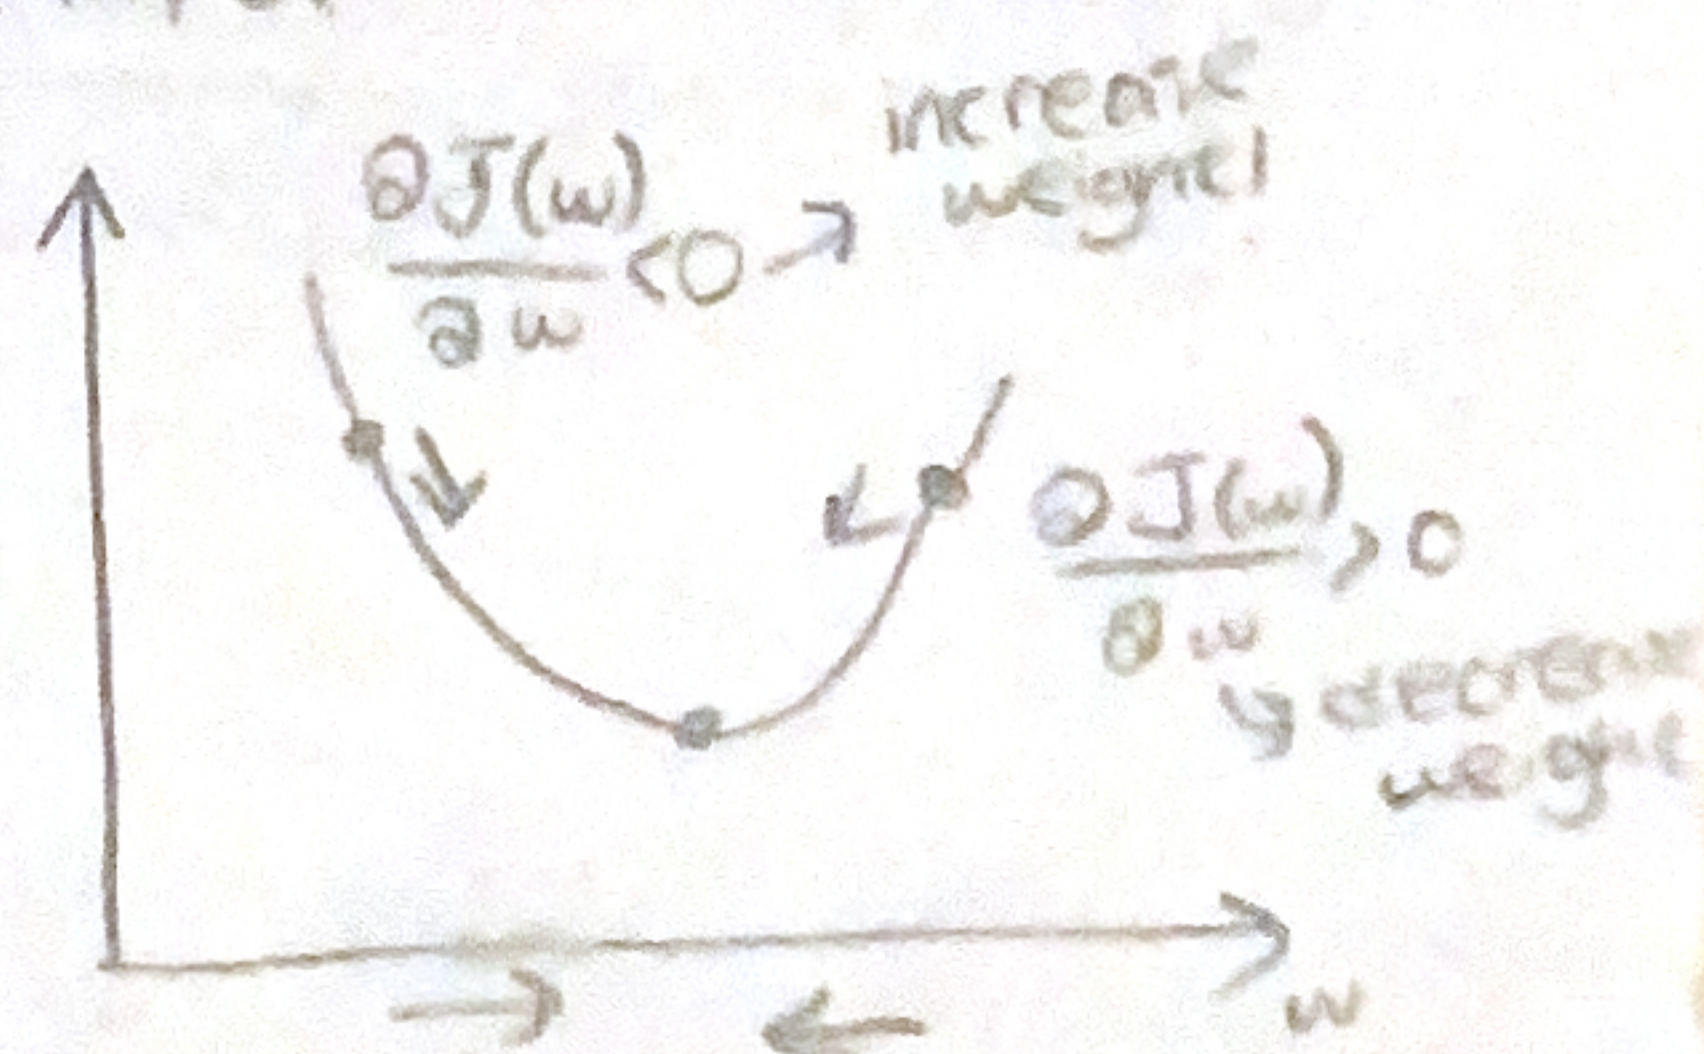 ∂J(w)
∂w
<0 →
increase
weight
∂J(w)
∂w
>0
↳ decrease
weight
w